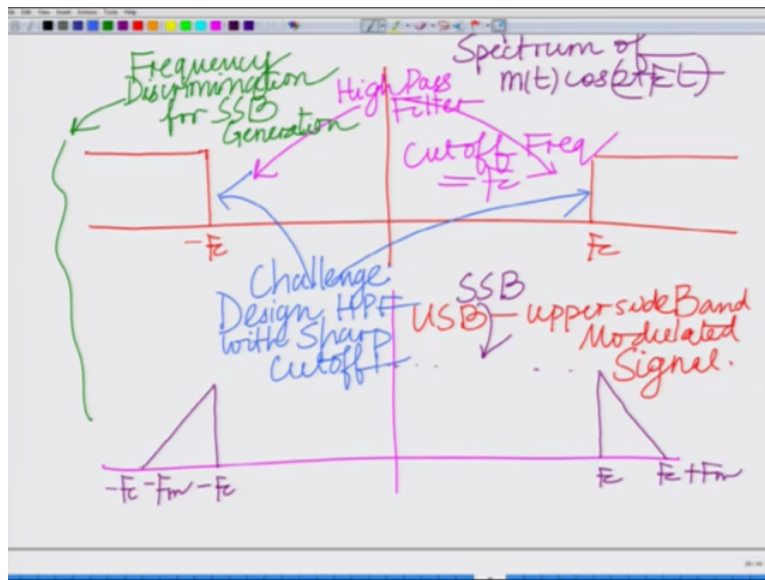 Frequency
Discrimination
for SSB
Generation
High Pass
Filter
Spectrum of
m(t) cos(2πFct)
Cutoff Freq
= fc
-Fc
Fc
Challenge
Design HPF
with Sharp
Cutoff!
SSB
USB — upper side Band
Modulated
Signal.
-Fc-Fm -Fc
Fc Fc+Fm